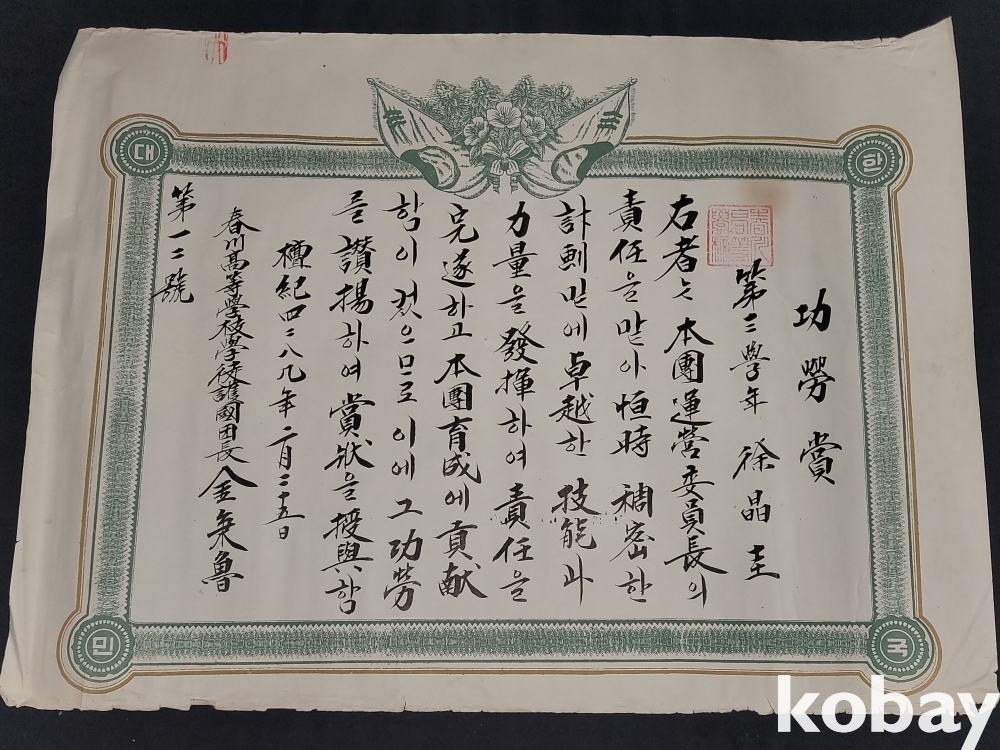 대
한
민
국
功勞賞
第二學年 徐晶圭
右者는 本團運營委員長의
責任을 맡아 恒時 稠密한
計劃밑에 卓越한 技能과
力量을 發揮하여 責任을
完遂하고 本團育成에 貢献
함이 컸으므로 이에 그 功勞
를 讃揚하여 賞狀을 授與함
檀紀四二八九年 二月二十五日
春川高等學校學徒護國团長 金秉魯
第一二號
kobay